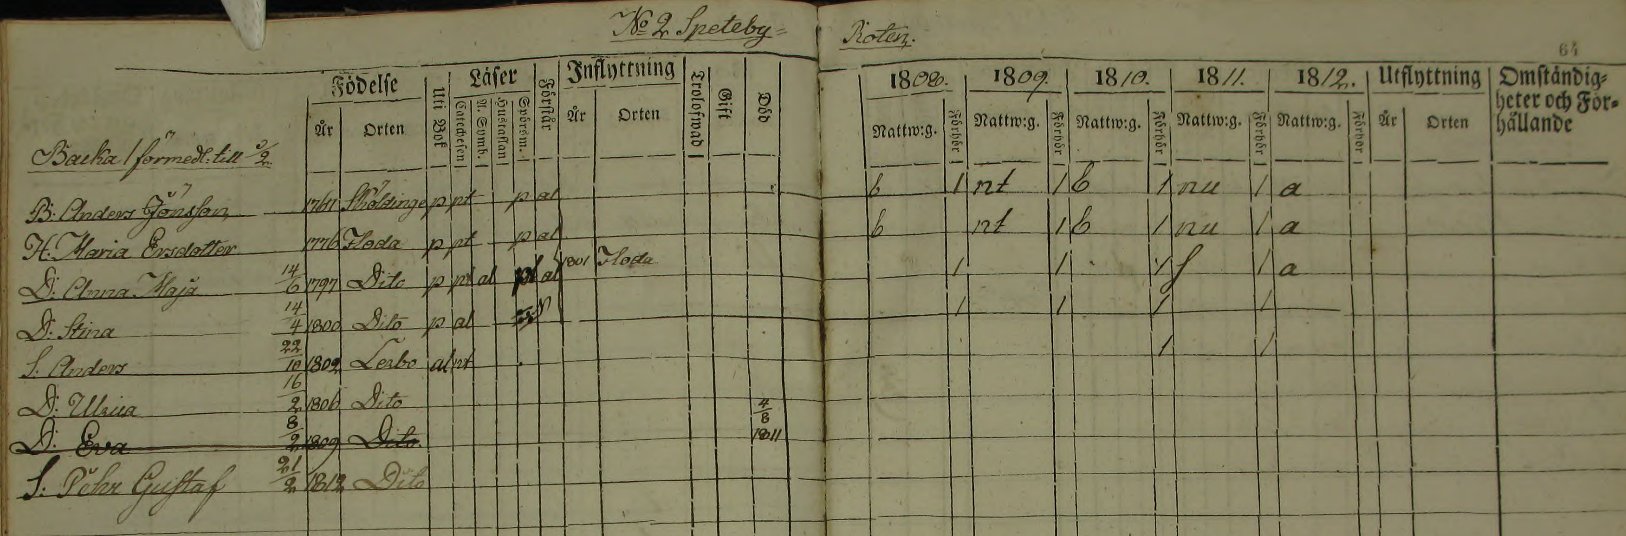 No 2 Speteby= Roten.
64
Födelse Uti Bok Läser Förstår Inflyttning Trolofwad Gift Död 1808. 1809. 1810. 1811. 1812. Utflyttning Omständig=heter och För=hållande
År Orten Catechesen A. Symb. Hustaflan Spörsm. År Orten Nattw:g. Förhör Nattw:g. Förhör Nattw:g. Förhör Nattw:g. Förhör Nattw:g. Förhör År Orten
Backa / förmedl: till
B: Anders Jönsson Sköldinge p pt p al 6 1 nt 1 6 1 nu 1 a
H. Maria Ersdotter 1776 Floda p pt p al 6 nt 1 6 1 nu 1 a
D: Anna Maja 14/6 1797 Dito p pt al al 1801 Floda 1 1 1 1 a
D: Stina 14/4 1800 Dito p al 1 1 1 1
S. Anders 22/10 1802 Lerbo al nt 1 1
D: Ulrica 16/2 1806 Dito
D: Eva 8/2 1809 Dito 4/8 1811
S: Pehr Gustaf 21/2 1812 Dito